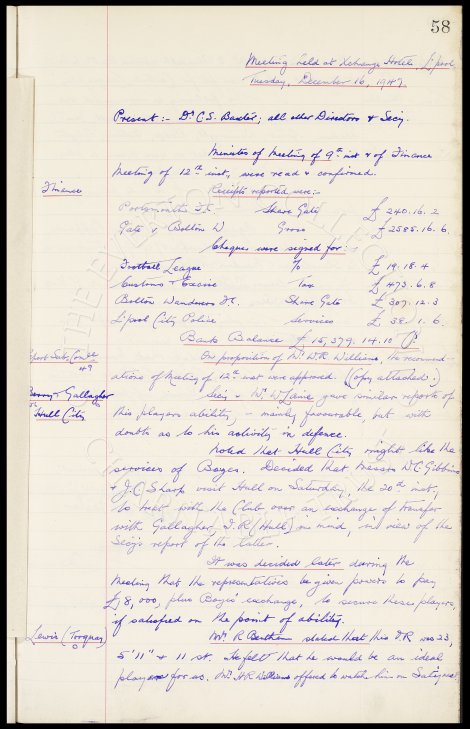 58
Meeting held at Xchange Hotel, L'pool,
Tuesday, December 16, 1947.
Present :- Dr C.S. Baxter; all other Directors & Secy.
Minutes of Meeting of 9th inst & of Finance
Meeting of 12th inst, were read & confirmed.
Finance
Receipts reported were:-
Portsmouth F.C. Share Gate £ 240. 16. 2
Gate v. Bolton W Gross £ 2585. 16. 6.
Cheques were signed for:-
Football League % £ 19. 18. 4
Customs & Excise Tax £ 473. 6. 8
Bolton Wanderers F.C. Share Gate £ 307. 12. 3
L'pool City Police Services £ 38. 1. 6.
Bank Balance £ 15,379. 14. 10
On proposition of Mr W.R. Williams, the recommend-
ations of Meeting of 12th inst were approved. (Copy attached.)
Gallagher
Hull City
Secy & Mr W gave similar reports of
this players ability, - mainly favourable, but with
doubts as to his activity in defence.
Noted that Hull City might like the
services of Boyes. Decided that Messrs W.C. Gibbins
& J.C. Sharp visit Hull on Saturday, the 20th inst,
to treat with the Club over an exchange of transfer
with Gallagher, I.R. (Hull) in mind, in view of the
Secy's report of the latter.
It was decided later during the
Meeting that the representatives be given powers to pay
£8,000, plus Boyes' exchange, to secure these players,
if satisfied on the point of ability.
Lewis (Torquay)
Mr. R stated that this I.R. was 23,
5' 11" & 11 st. He felt that he would be an ideal
player for us. Mr. W.R. Williams offered to watch him on Sat. next